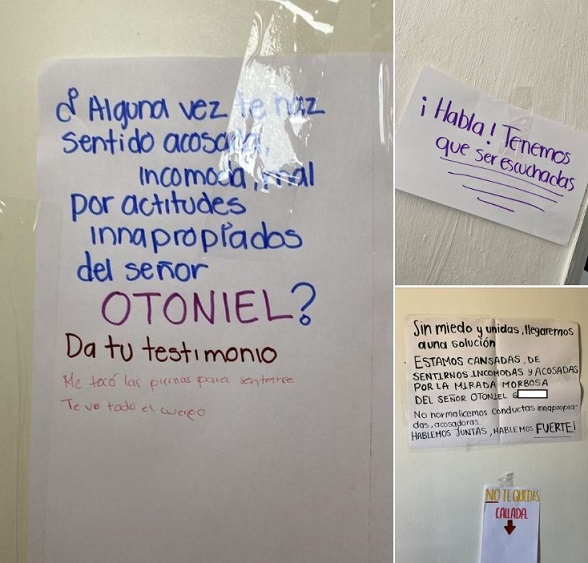 ¿Alguna vez te haz
sentido acosada,
incomoda, mal
por actitudes
innapropiados
del señor
OTONIEL?
Da tu testimonio
Me tocó las piernas para sentarme
Te ve todo el cuerpo
¡Habla! Tenemos
que ser escuchadas
Sin miedo y unidas, llegaremos
a una solución
ESTAMOS CANSADAS, DE
SENTIRNOS INCOMODAS Y ACOSADAS
POR LA MIRADA MORBOSA
DEL SEÑOR OTONIEL G
No normalicemos conductas innapropia-
das, acosadoras.
HABLEMOS JUNTAS, HABLEMOS FUERTE!
NO TE QUEDES
CALLADA.